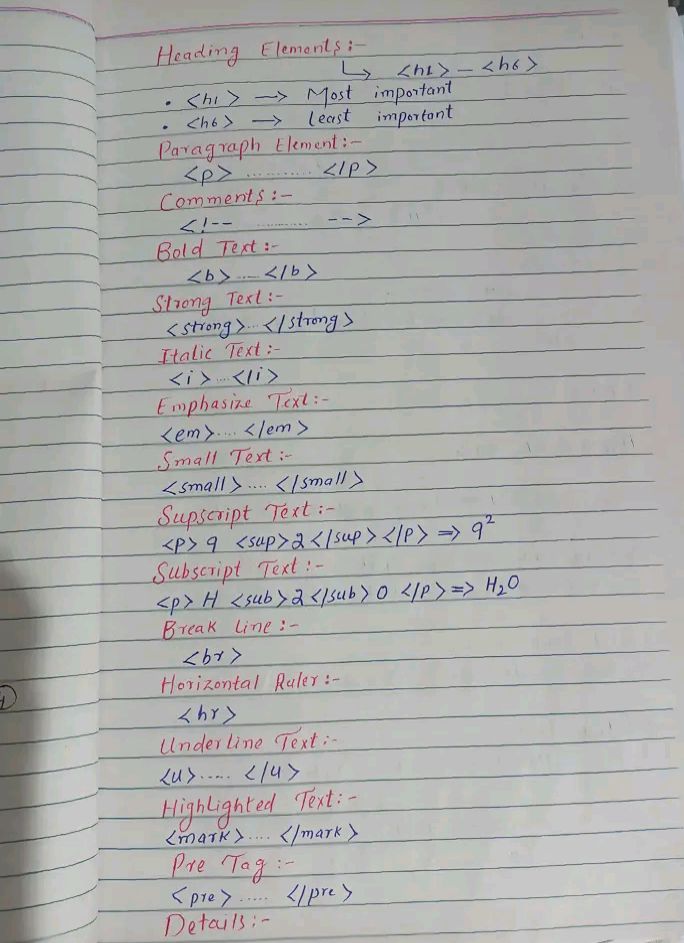 Heading Elements :-
↳ <h1> - <h6>
• <h1> → Most important
• <h6> → least important
Paragraph Element :-
<p> ............ </p>
Comments :-
<!-- .......... -->
Bold Text :-
<b> .... </b>
Strong Text :-
<strong> ... </strong>
Italic Text :-
<i> ... </i>
Emphasize Text :-
<em> .... </em>
Small Text :-
<small> .... </small>
Supscript Text :-
<p> 9 <sup> 2 </sup> </p> ⇒ 9²
Subscript Text :-
<p> H <sub> 2 </sub> O </p> ⇒ H₂O
Break Line :-
<br>
Horizontal Ruler :-
<hr>
Underline Text :-
<u> ..... </u>
Highlighted Text :-
<mark> .... </mark>
Pre Tag :-
<pre> ..... </pre>
Details :-